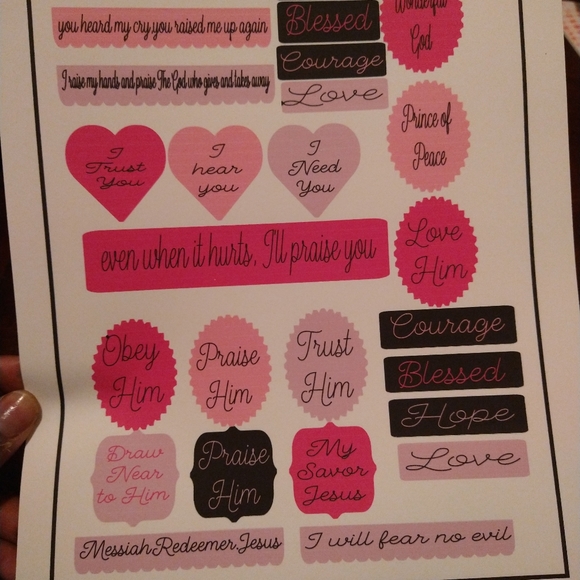 you heard my cry you raised me up again
Blessed
Wonderful
God
Courage
I raise my hands and praise The God who gives and takes away
Love
Prince of
Peace
I
Trust
You
I
hear
you
I
Need
You
even when it hurts, I'll praise you
Love
Him
Obey
Him
Praise
Him
Trust
Him
Courage
Blessed
Hope
Love
Draw
Near
to Him
Praise
Him
My
Savor
Jesus
Messiah Redeemer Jesus
I will fear no evil